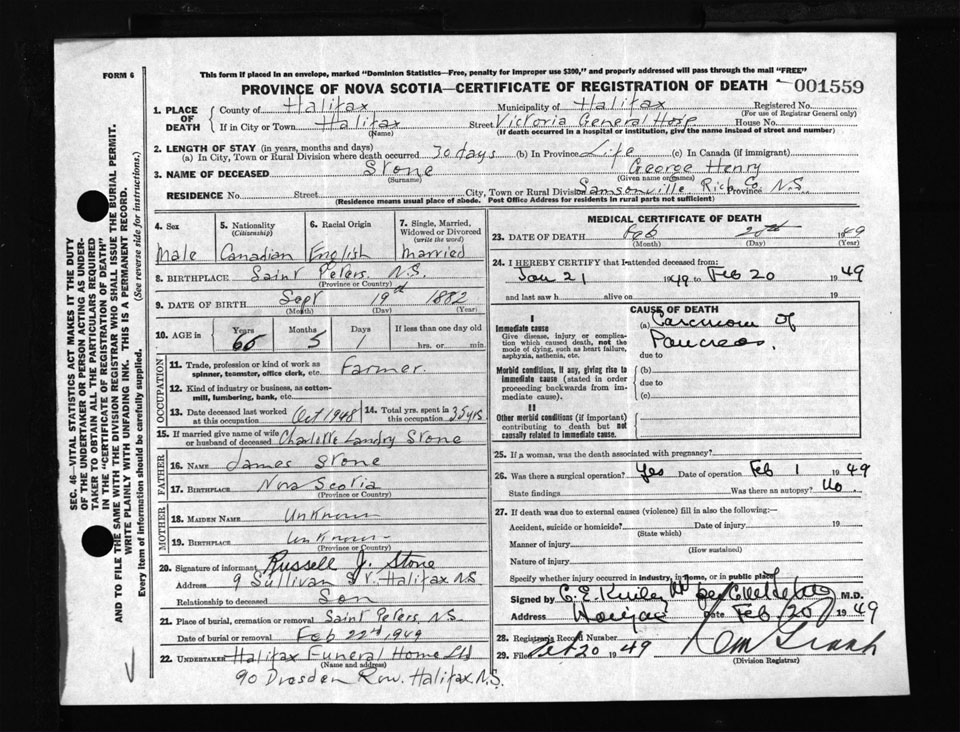 FORM 6
This form if placed in an envelope, marked "Dominion Statistics—Free, penalty for improper use $300," and properly addressed will pass through the mail "FREE"
PROVINCE OF NOVA SCOTIA—CERTIFICATE OF REGISTRATION OF DEATH 001559
1. PLACE OF DEATH County of Halifax Municipality of Halifax Registered No.
(For use of Registrar General only)
If in City or Town Halifax Street Victoria General Hosp House No.
(Name) (If death occurred in a hospital or institution, give the name instead of street and number)
2. LENGTH OF STAY (in years, months and days)
(a) In City, Town or Rural Division where death occurred 30 days (b) In Province Life (c) In Canada (if immigrant)
3. NAME OF DECEASED Stone George Henry
(Surname) (Given name or names)
RESIDENCE No. Street City, Town or Rural Division Samsonville Rich Co. Province N.S.
(Residence means usual place of abode. Post Office Address for residents in rural parts not sufficient)
4. Sex 5. Nationality (Citizenship) 6. Racial Origin 7. Single, Married, Widowed or Divorced (write the word)
Male Canadian English Married
8. BIRTHPLACE Saint Peters, N.S.
(Province or Country)
9. DATE OF BIRTH Sept 19th 1882
(Month) (Day) (Year)
10. AGE Years Months Days If less than one day old
66 5 1 hrs. or min.
OCCUPATION
11. Trade, profession or kind of work as spinner, teamster, office clerk, etc. Farmer.
12. Kind of industry or business, as cotton-mill, lumbering, bank, etc.
13. Date deceased last worked at this occupation Oct 1948 14. Total yrs. spent in this occupation 35 yrs.
15. If married give name of wife or husband of deceased Charlotte Landry Stone
FATHER
16. NAME James Stone
17. BIRTHPLACE Nova Scotia
(Province or Country)
MOTHER
18. MAIDEN NAME Unknown
19. BIRTHPLACE Unknown
(Province or Country)
20. Signature of informant Russell J. Stone
Address 9 Sullivan St. Halifax N.S.
Relationship to deceased Son
21. Place of burial, cremation or removal Saint Peters, N.S.
Date of burial or removal Feb 22nd, 1949
22. UNDERTAKER Halifax Funeral Home Ltd
(Name and address)
90 Dresden Row. Halifax N.S.
MEDICAL CERTIFICATE OF DEATH
23. DATE OF DEATH Feb 20th 1949
(Month) (Day) (Year)
24. I HEREBY CERTIFY that I attended deceased from:
Jan 21 1949 to Feb 20 1949
and last saw h alive on 19
CAUSE OF DEATH
I
Immediate cause
Give disease, injury or complication which caused death, not the mode of dying, such as heart failure, asphyxia, asthenia, etc.
(a) Carcinom of
Pancreas.
due to
Morbid conditions, if any, giving rise to immediate cause (stated in order proceeding backwards from immediate).
(b)
due to
(c)
II
Other morbid conditions (if important) contributing to death but not causally related to immediate cause.
25. If a woman, was the death associated with pregnancy?
26. Was there a surgical operation? Yes Date of operation Feb 1 1949
State findings Was there an autopsy? No.
27. If death was due to external causes (violence) fill in also the following:—
Accident, suicide or homicide? Date of injury 19
(State which)
Manner of injury
(How sustained)
Nature of injury
Specify whether injury occurred in industry, in home, or in public place
Signed by C. E. M.D.
Address Halifax Date Feb 20 1949
28. Registrar's Record Number
29. Filed Feb 20 1949
(Division Registrar)
SEC. 46—VITAL STATISTICS ACT MAKES IT THE DUTY
OF THE UNDERTAKER OR PERSON ACTING AS UNDER-
TAKER TO OBTAIN ALL THE PARTICULARS REQUIRED
IN THE "CERTIFICATE OF REGISTRATION OF DEATH"
AND TO FILE THE SAME WITH THE DIVISION REGISTRAR WHO SHALL ISSUE THE BURIAL PERMIT.
WRITE PLAINLY WITH UNFADING INK. THIS IS A PERMANENT RECORD.
Every item of information should be carefully supplied. (See reverse side for instructions.)